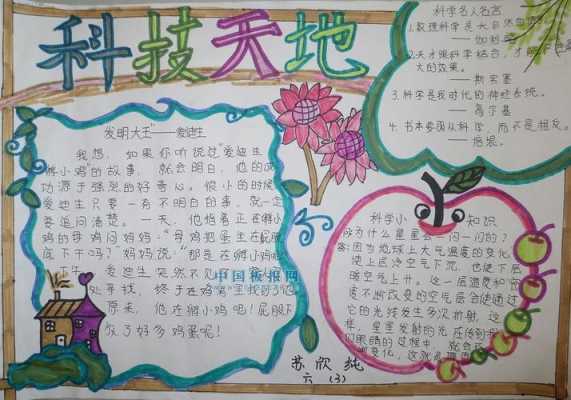 科技天地
发明大王"——爱迪生
我想，如果你听说过"爱迪生
孵小鸡"的故事，就会明白，他的成
功源于强烈的好奇心。很小的时候
爱迪生只要一有不明白的事，就一定
要追问清楚。一天，他指着正在孵小
鸡的母鸡问妈妈："母鸡把蛋坐在屁股
底下干吗？"妈妈说："那是在孵小鸡呢
午，爱迪生突然不见
处寻找，终于在鸡窝里找到了他
原来，他在孵小鸡吧！屁股下
放了好多鸡蛋呢！
中国板报网
科学名人名言
1.数理科学是大自然的语言。
——伽利略
2.天才跟科学结合，才能
大的效果。
——斯宾塞
3.科学是我时代的神经系统。
——高尔基
4.书本要跟从科学，而不是相反。
——培根。
科学小知识
问为什么星星会一闪一闪的？
答：因为地球上大气温度的变化
使上层冷空气下沉，也使下层
暖空气上升。这一层温度和密
度不断改变的空气层会使通过
它的光线发生多次折射，这
样，星星发射的光在传到我
们眼睛的过程中，就会
变化，这就
苏欣纯
六（3）